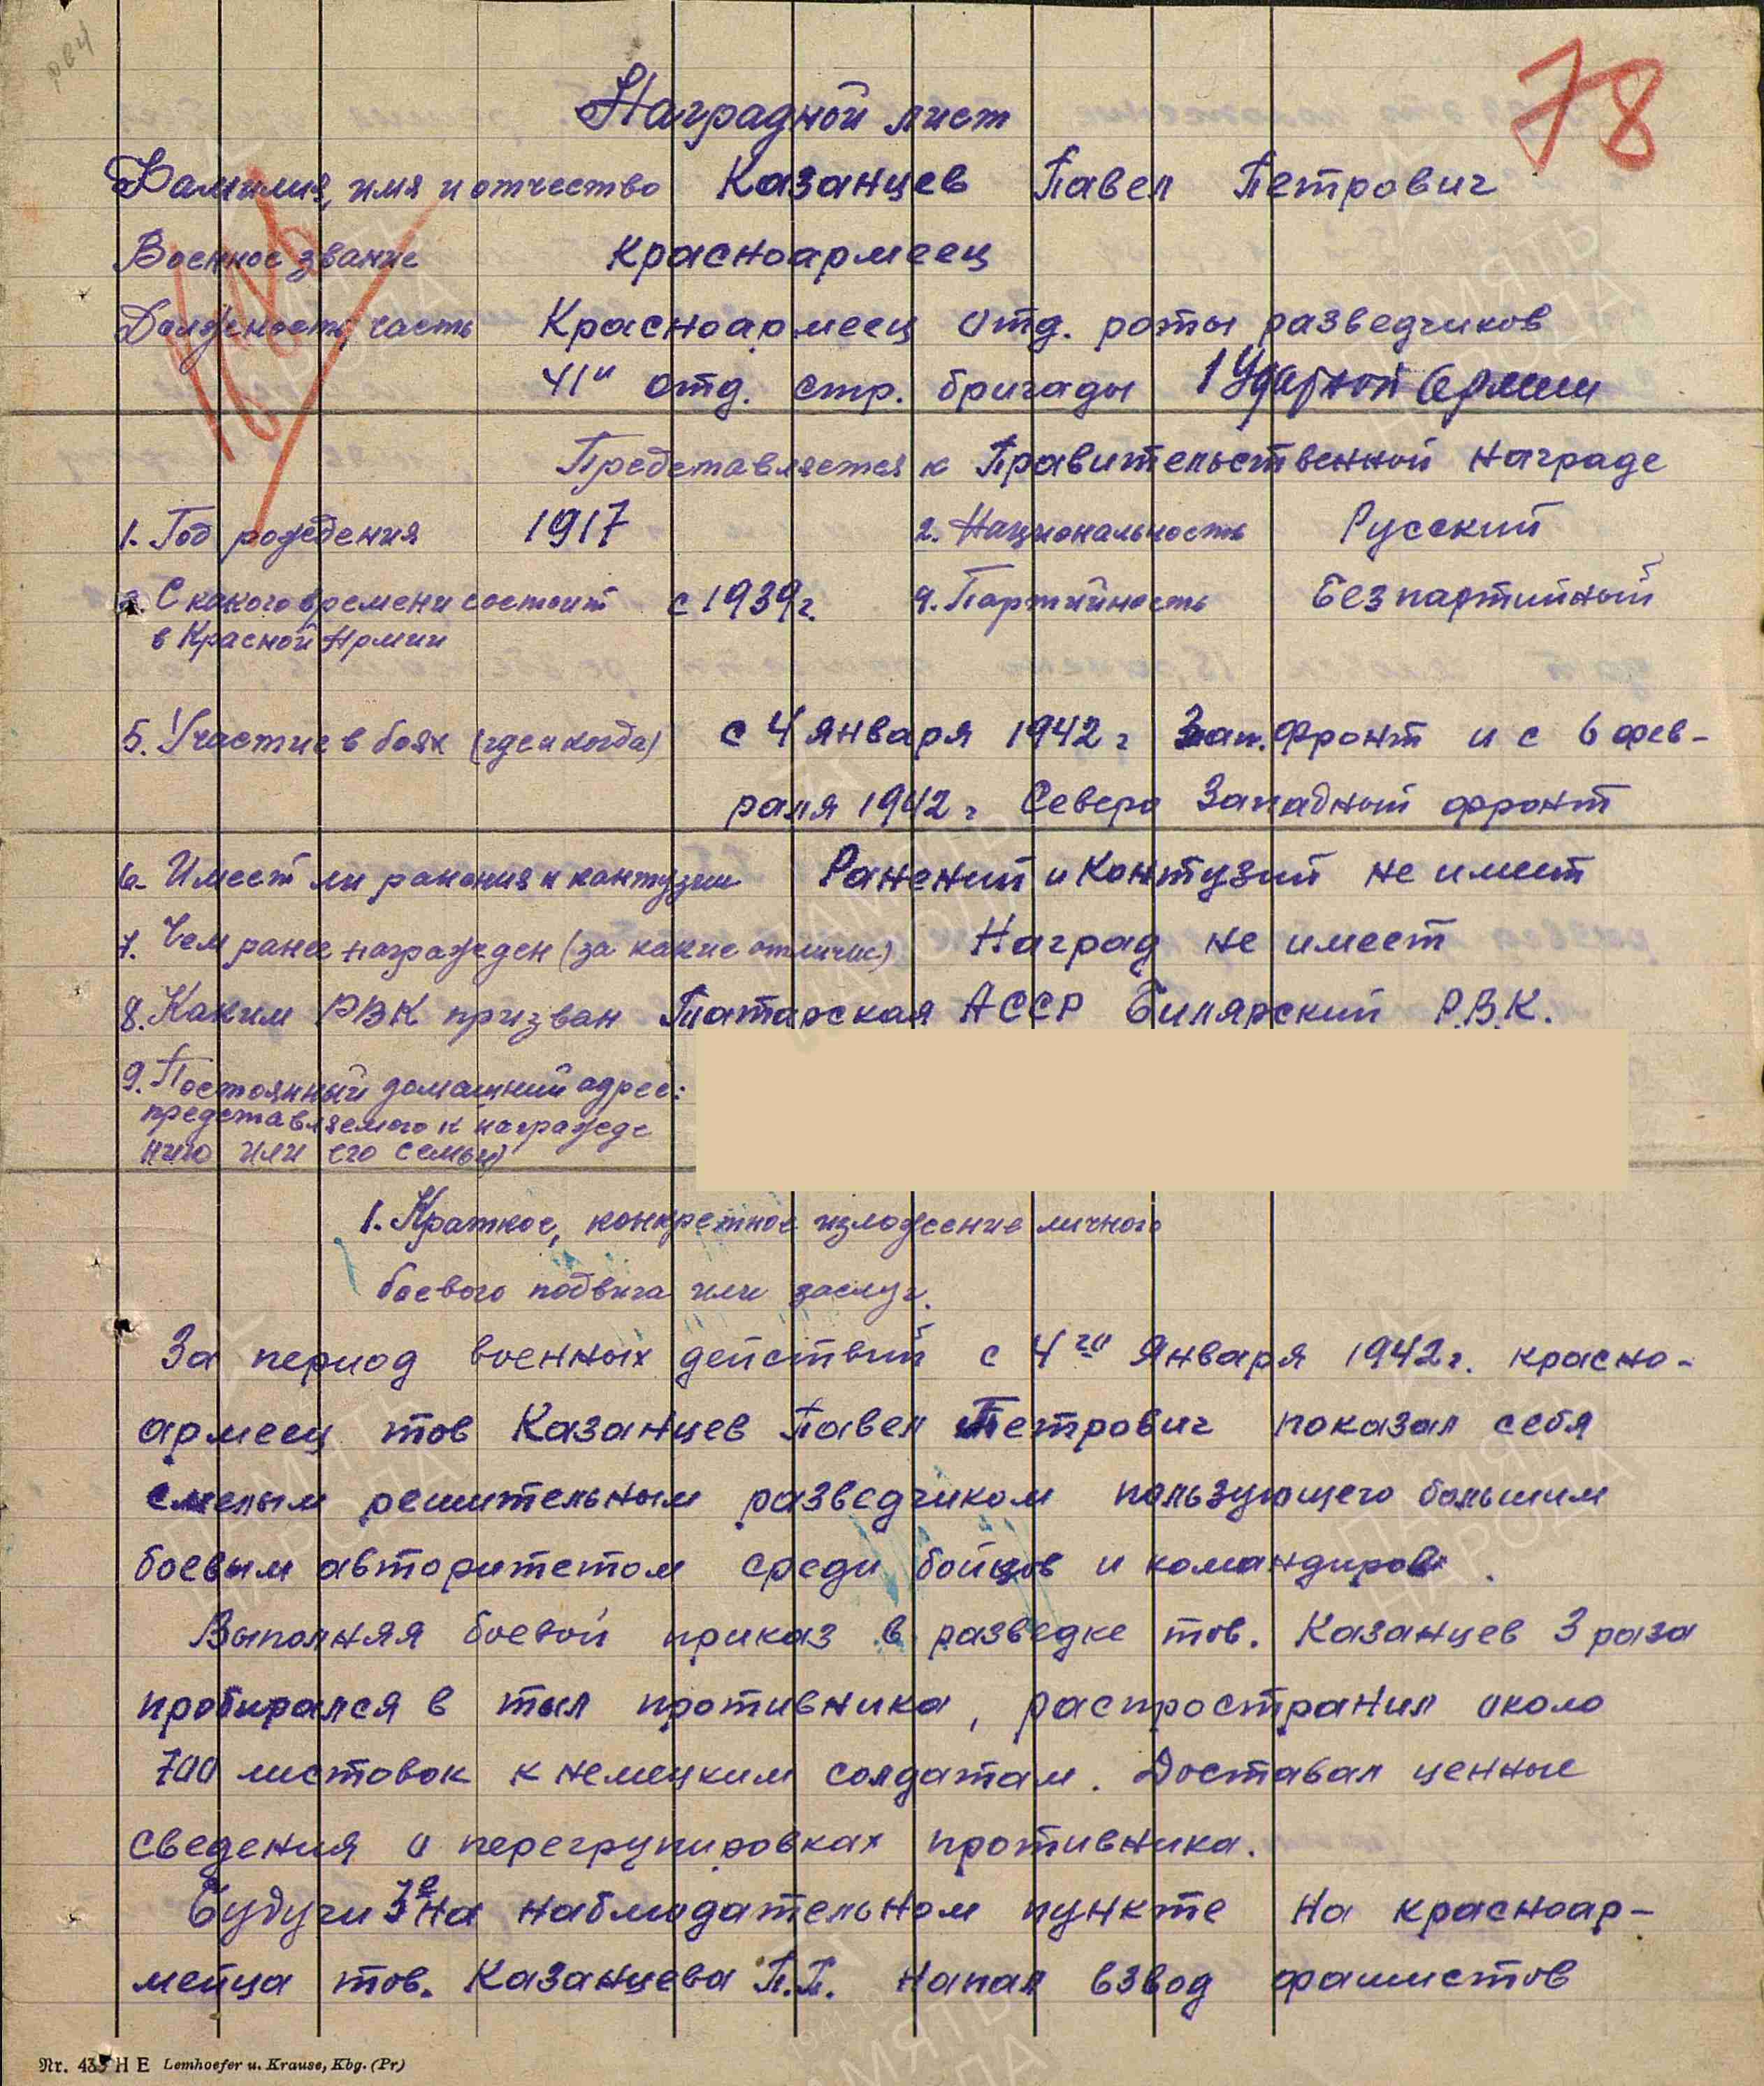 78
Наградной лист
Фамилия, имя и отчество Казанцев Павел Петрович
Военное звание Красноармеец
Должность, часть Красноармеец отд. роты разведчиков
41й отд. стр. бригады 1 Ударной Армии
Представляется к Правительственной награде
1. Год рождения 1917 2. Национальность Русский
3. С какого времени состоит с 1939г. 4. Партийность Безпартийный
в Красной Армии
5. Участие в боях (где и когда) с 4 января 1942 г Зап. Фронт и с 6 фев-
раля 1942 г Северо Западный фронт
6. Имеет ли ранения и контузии Ранений и Контузий не имеет
7. Чем ранее награжден (за какие отличие) Наград не имеет
8. Каким РВК призван Татарская АССР Билярский Р.В.К.
9. Постоянный домашний адрес:
представляемого к награжде
нию или его семьи)
1. Краткое, конкретное изложение личного
боевого подвига или заслуг.
За период военных действий с 4го Января 1942г. красно-
армеец тов Казанцев Павел Петрович показал себя
смелым решительным разведчиком пользующего большим
боевым авторитетом среди бойцов и командиров.
Выполняя боевой приказ в разведке тов. Казанцев 3 раза
пробирался в тыл противника, распространил около
700 листовок к немецким солдатам. Доставал ценные
сведения о перегрупировках противника.
Будучи на наблюдательном пункте на красноар-
мейца тов. Казанцева П.П. напал взвод фашистов
Nr. 435 H E Lemhoefer u. Krause, Kbg. (Pr)
ПАМЯТЬ
НАРОДА